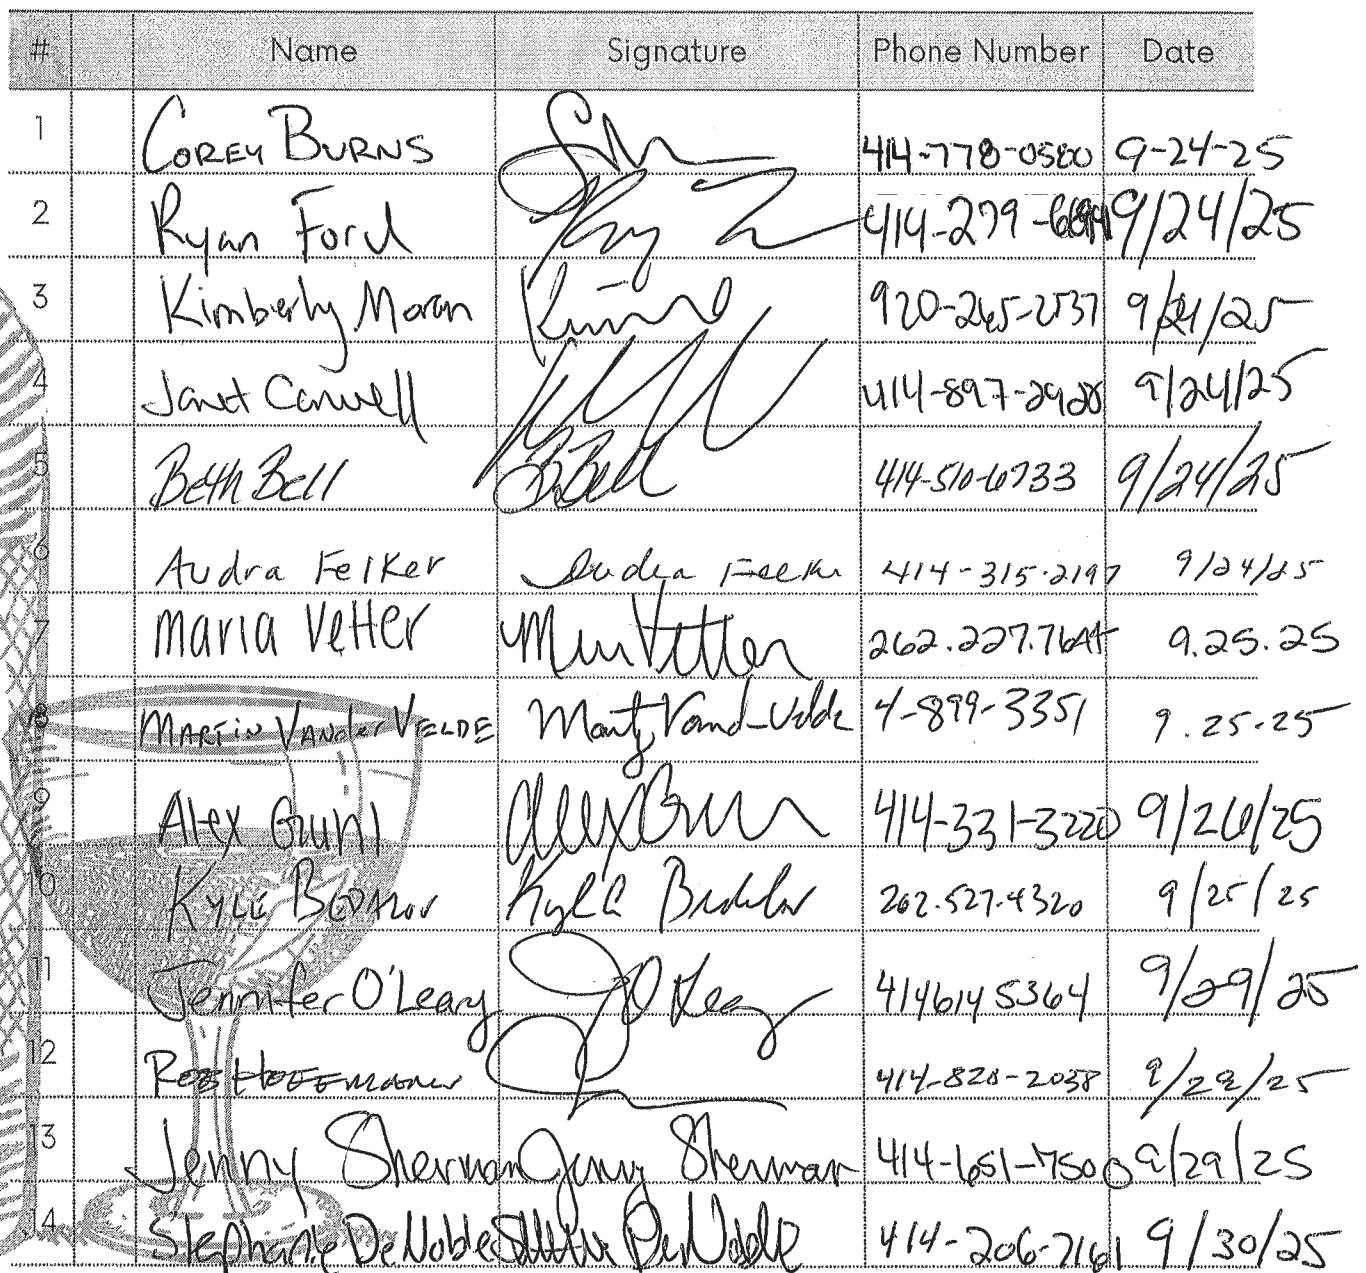 # Name Signature Phone Number Date
1 Corey Burns 414-778-0580 9-24-25
2 Ryan Ford 414-279- 9/24/25
3 Kimberly Moran 920-265-2537 9/24/25
4 Janet Carwell 414-897-2928 9/24/25
5 Beth Bell B. Bell 414-510-6733 9/24/25
6 Audra Felker Audra Felker 414-315-2197 9/24/25
7 Maria Vetter Maria Vetter 262.227.7644 9.25.25
8 Martin Vander Velde 4-899-3351 9.25.25
9 Alex 414-331-3220 9/26/25
10 Kyle Kyle 262.527.4320 9/25/25
11 Jennifer O'Leary J O'Leary 4146145364 9/29/25
12 Rob Hoffmann 414-828-2038 9/29/25
13 Jenny Sherman Jenny Sherman 414-651-7500 9/29/25
14 Stephanie DeNoble DeNoble 414-206-7161 9/30/25